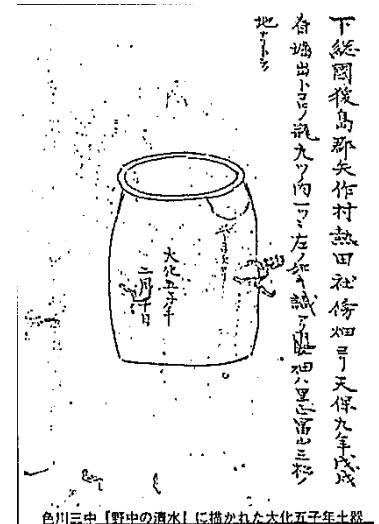 下総國猨島郡矢作村熱田社傍畑ヨリ天保九年戊戌
春堀出トコロノ瓶九ツ内一ツニ左ノ如キ識アリ此畑ハ里正冨山三松ノ
地ナリトゾ
大化五子年
二月十日
色川三中「野中の清水」に描かれた大化五子年土器